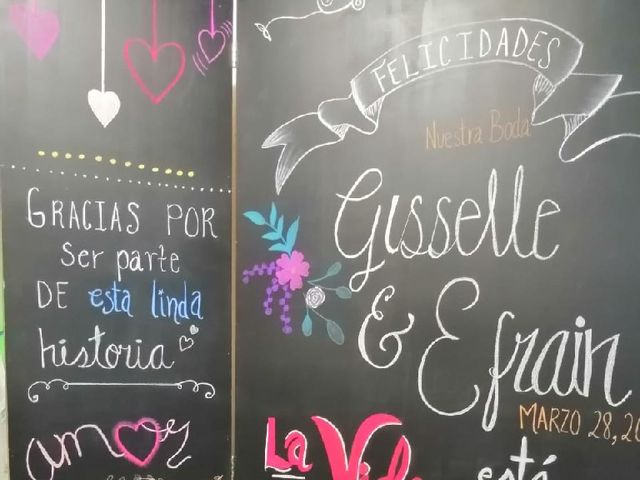 GRACIAS POR
ser parte
DE esta linda
historia
amor
FELICIDADES
Nuestra Boda
Gisselle
& Efrain
MARZO 28, 20
La Vida
está